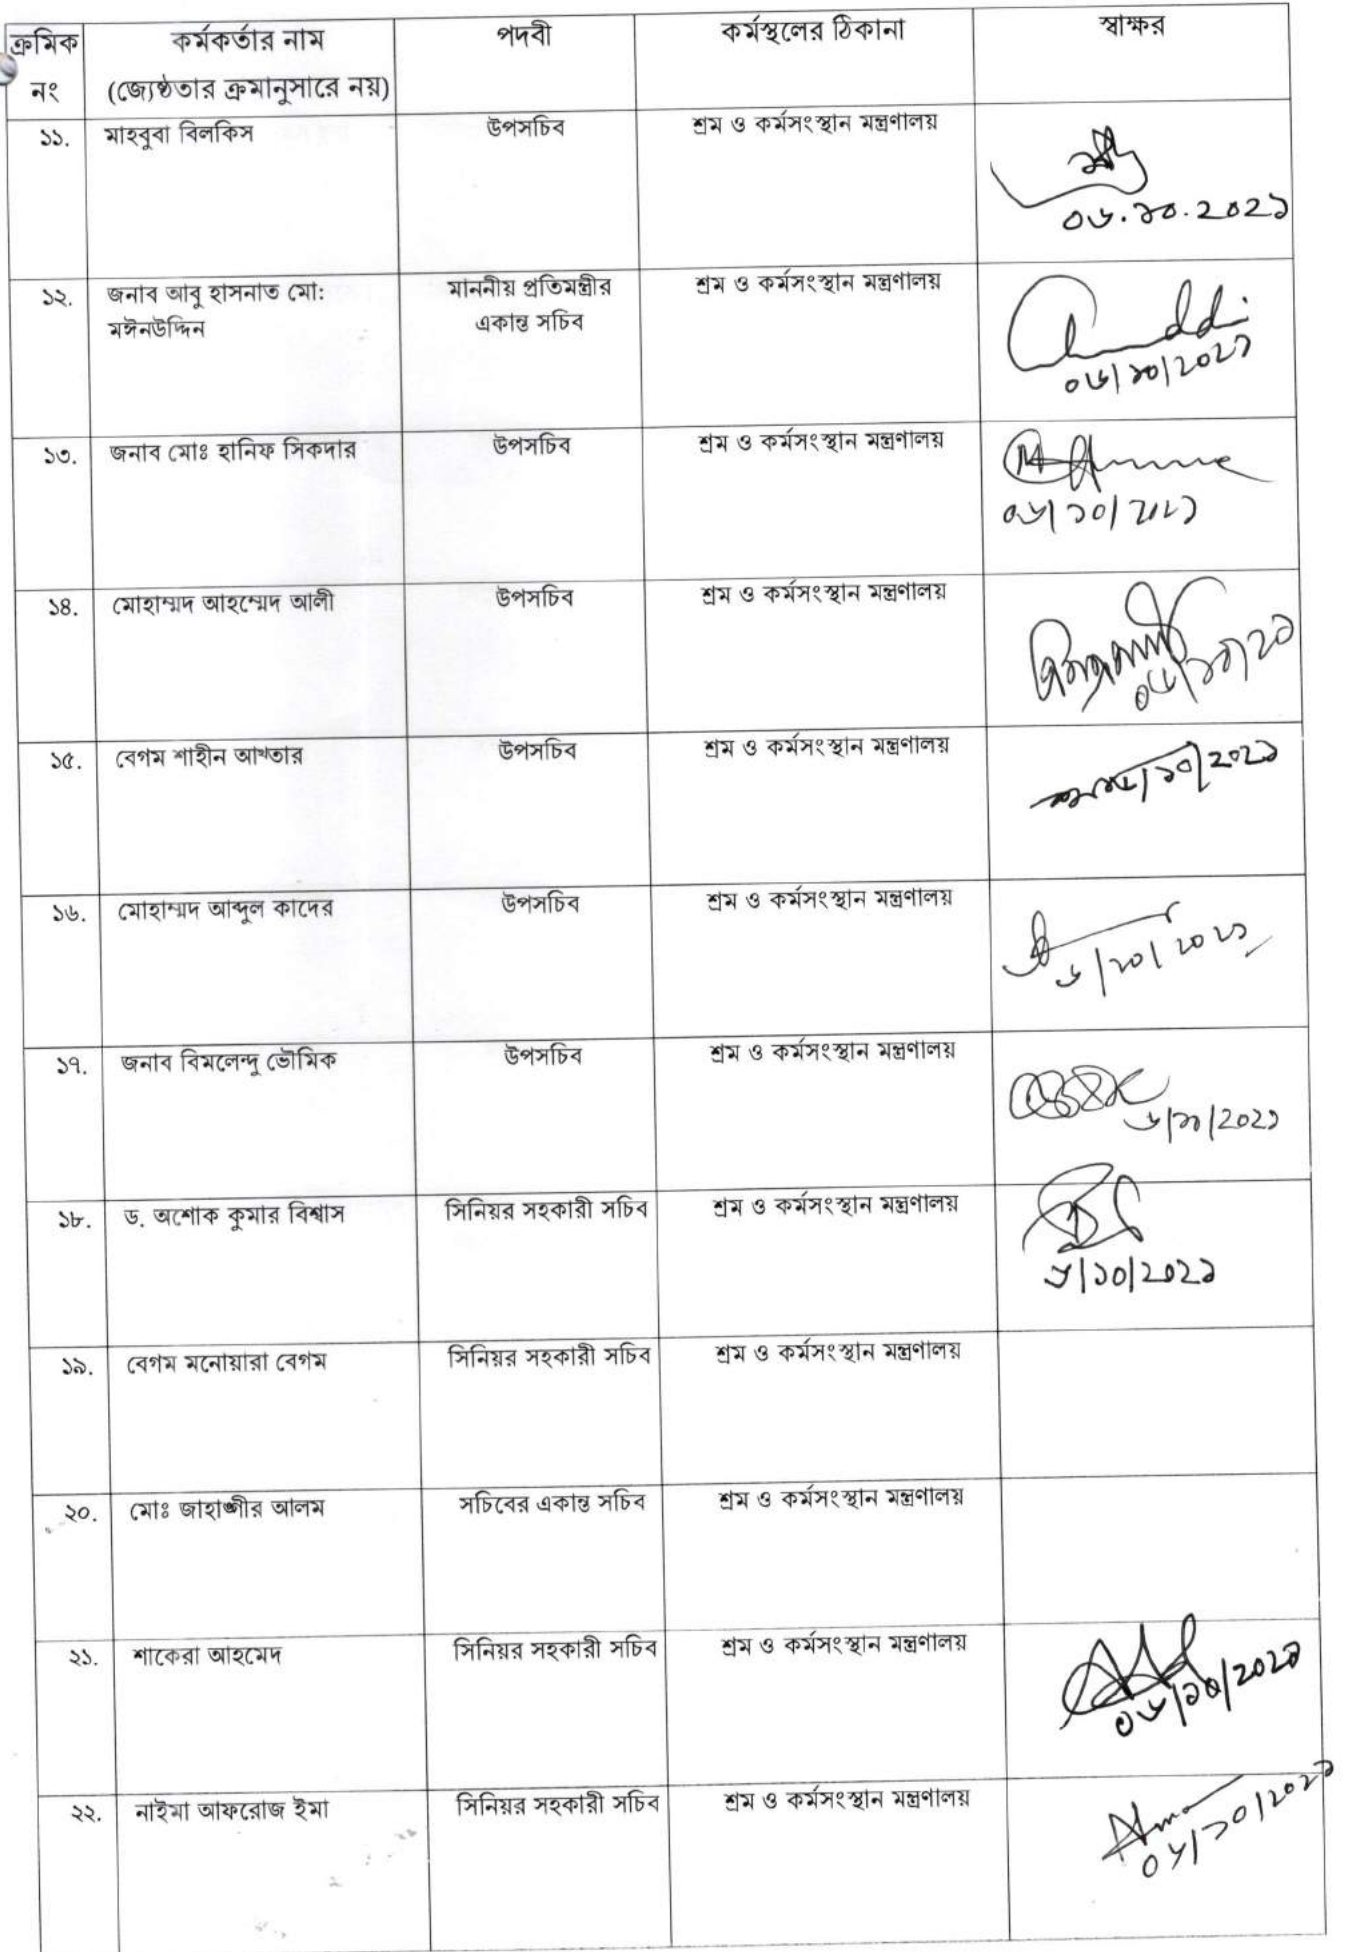 ক্রমিক নং | কর্মকর্তার নাম (জ্যেষ্ঠতার ক্রমানুসারে নয়) | পদবী | কর্মস্থলের ঠিকানা | স্বাক্ষর
১১. | মাহবুবা বিলকিস | উপসচিব | শ্রম ও কর্মসংস্থান মন্ত্রণালয়
০৬.১০.২০২১
১২. | জনাব আবু হাসনাত মো: | মাননীয় প্রতিমন্ত্রীর | শ্রম ও কর্মসংস্থান মন্ত্রণালয়
মঈনউদ্দিন | একান্ত সচিব
০৬/১০/২০২১
১৩. | জনাব মোঃ হানিফ সিকদার | উপসচিব | শ্রম ও কর্মসংস্থান মন্ত্রণালয়
০৬/১০/২০২১
১৪. | মোহাম্মদ আহম্মেদ আলী | উপসচিব | শ্রম ও কর্মসংস্থান মন্ত্রণালয়
০৬/১০/২১
১৫. | বেগম শাহীন আখতার | উপসচিব | শ্রম ও কর্মসংস্থান মন্ত্রণালয়
১০/২০২১
১৬. | মোহাম্মদ আব্দুল কাদের | উপসচিব | শ্রম ও কর্মসংস্থান মন্ত্রণালয়
৬/১০/২০২১
১৭. | জনাব বিমলেন্দু ভৌমিক | উপসচিব | শ্রম ও কর্মসংস্থান মন্ত্রণালয়
৬/১০/২০২১
১৮. | ড. অশোক কুমার বিশ্বাস | সিনিয়র সহকারী সচিব | শ্রম ও কর্মসংস্থান মন্ত্রণালয়
৬/১০/২০২১
১৯. | বেগম মনোয়ারা বেগম | সিনিয়র সহকারী সচিব | শ্রম ও কর্মসংস্থান মন্ত্রণালয়
২০. | মোঃ জাহাঙ্গীর আলম | সচিবের একান্ত সচিব | শ্রম ও কর্মসংস্থান মন্ত্রণালয়
২১. | শাকেরা আহমেদ | সিনিয়র সহকারী সচিব | শ্রম ও কর্মসংস্থান মন্ত্রণালয়
০৬/১০/২০২১
২২. | নাইমা আফরোজ ইমা | সিনিয়র সহকারী সচিব | শ্রম ও কর্মসংস্থান মন্ত্রণালয়
০৬/১০/২০২১